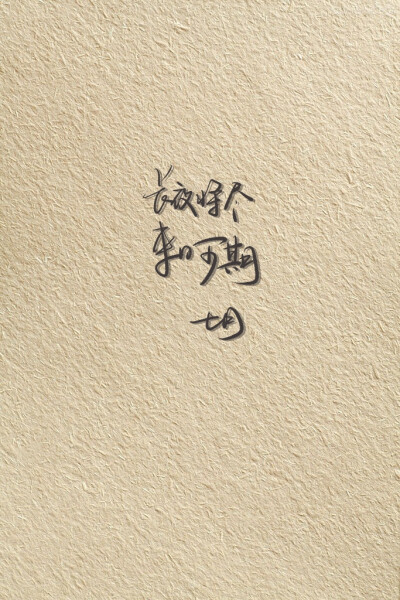 长夜将尽
来日可期
七月